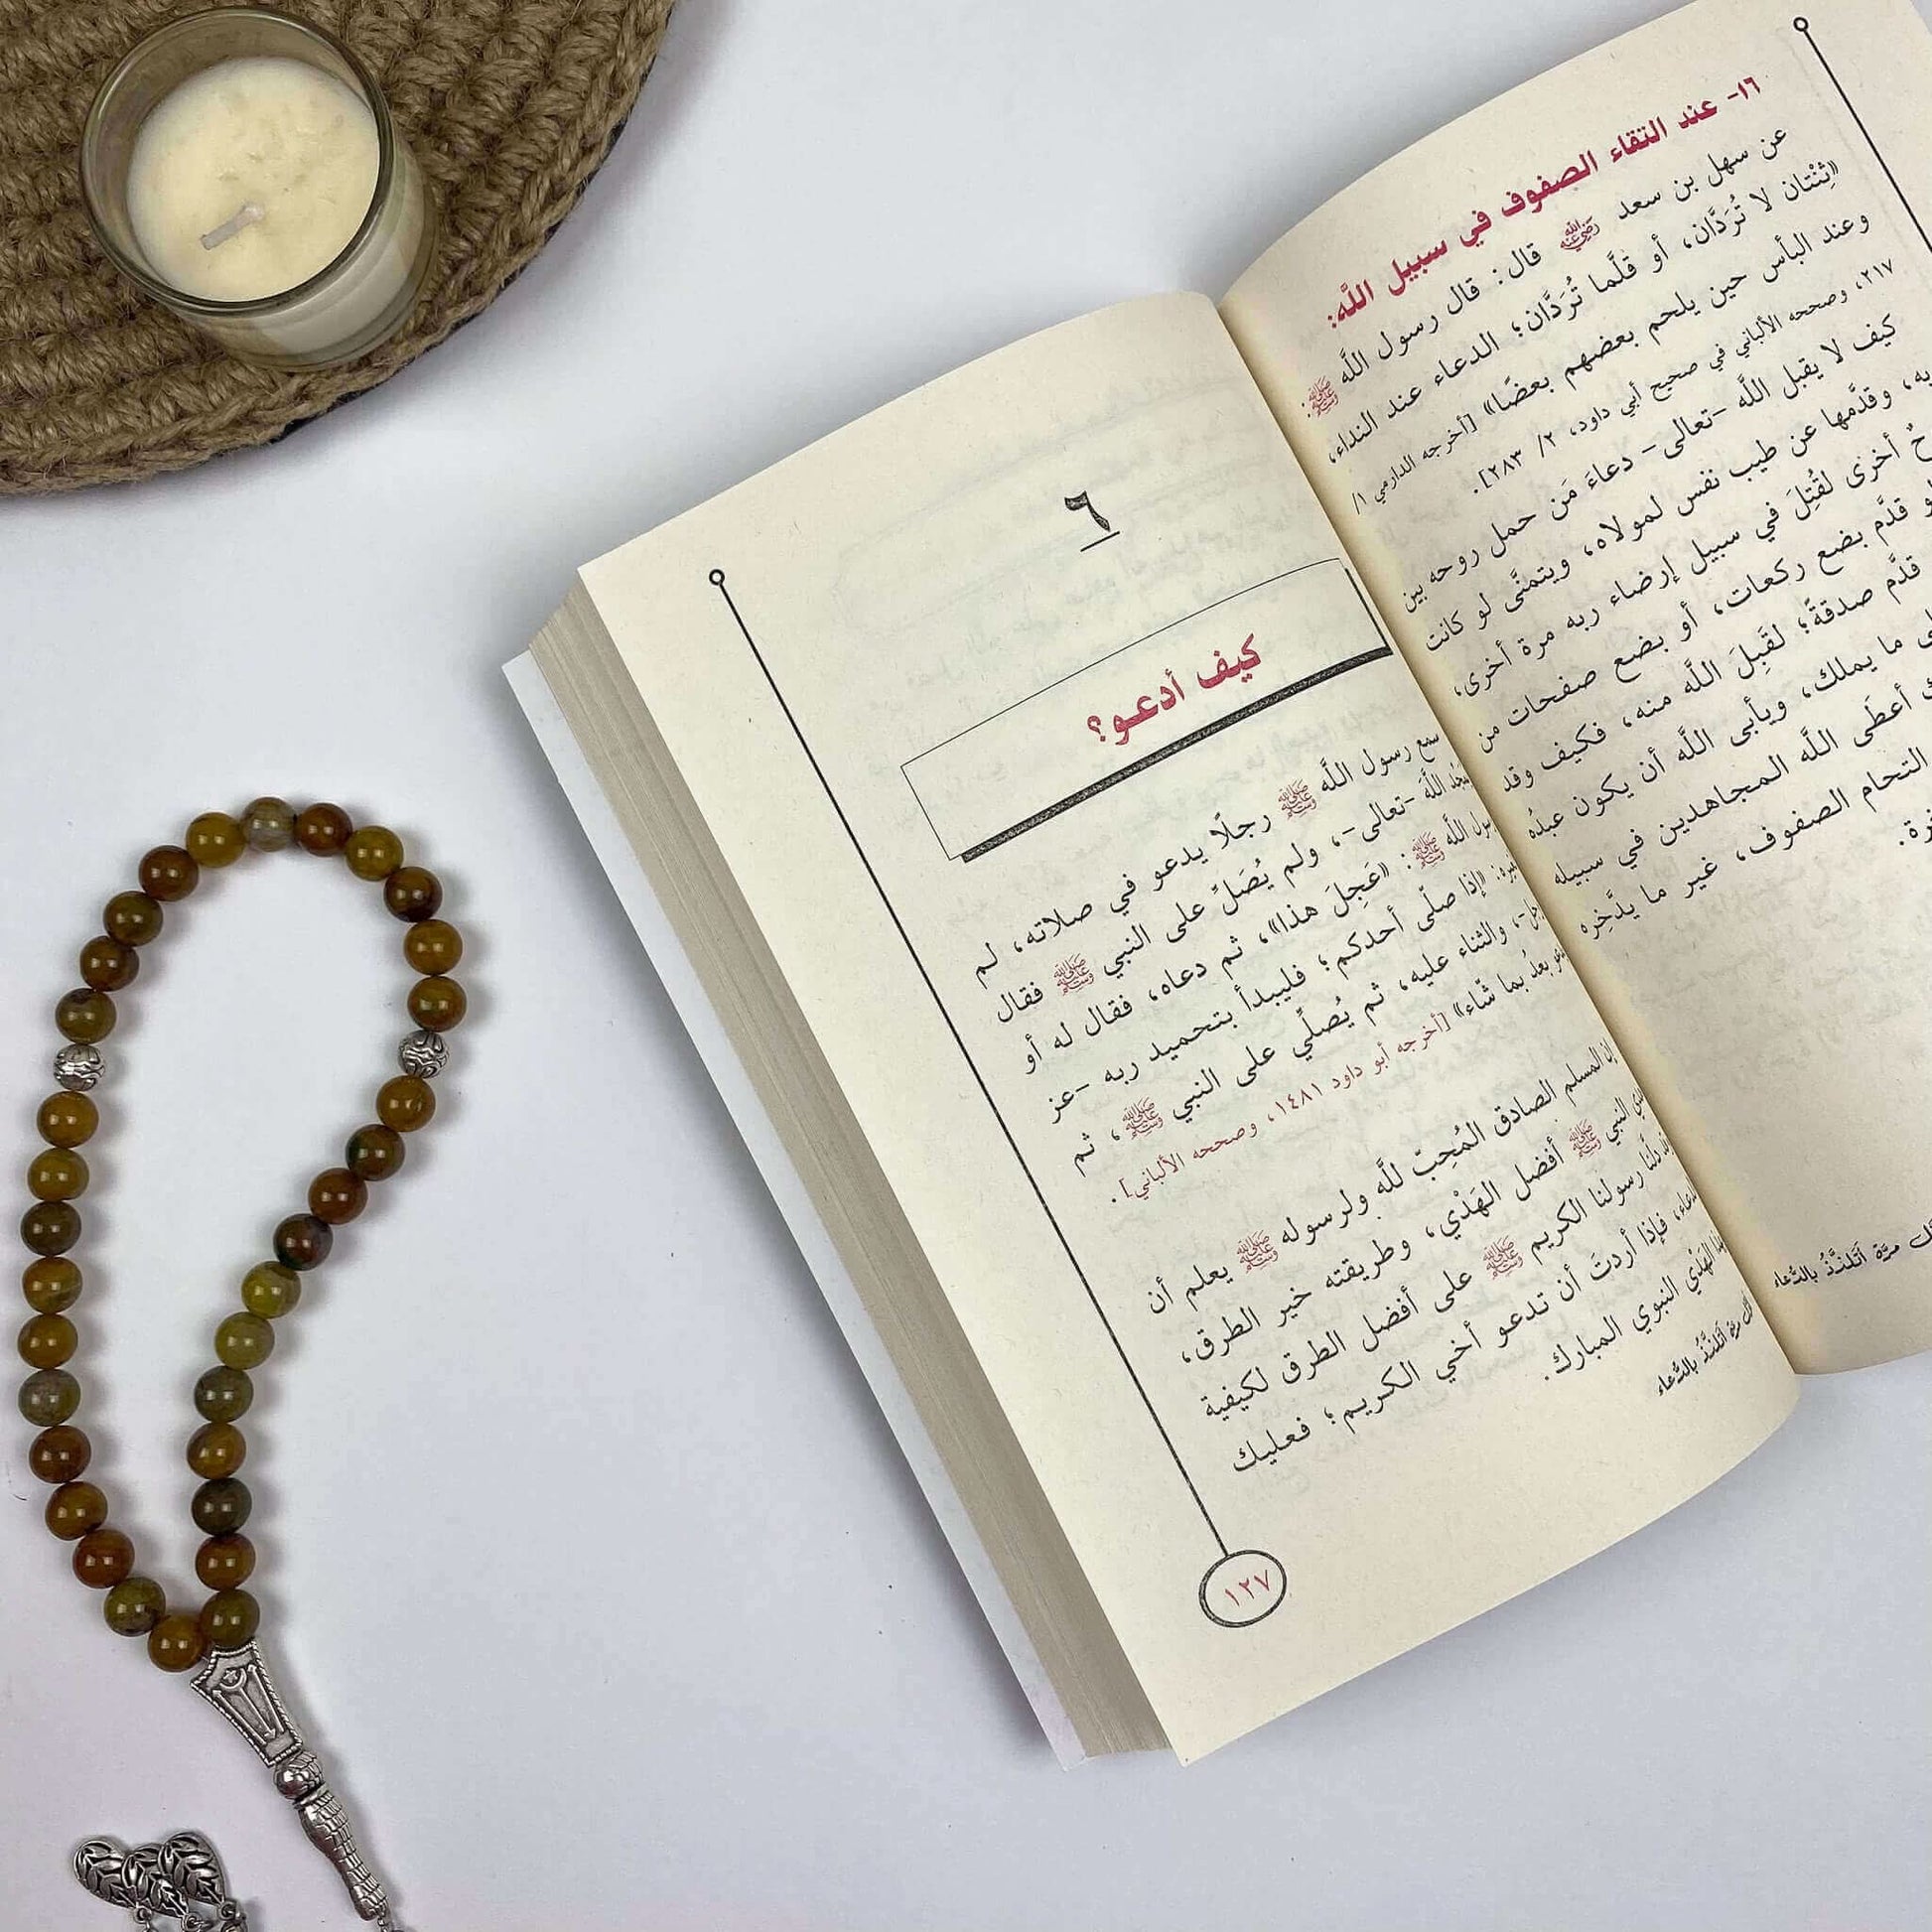 ١٦- عند التقاء الصفوف في سبيل اللَّه:
عن سهل بن سعد رضي الله عنه قال: قال رسول اللَّه ﷺ:
«ثِنْتان لا تُرَدَّان، أو قلَّما تُرَدَّان؛ الدعاء عند النداء،
وعند البأس حين يلحم بعضهم بعضًا» [أخرجه الدارمي ١/
٢١٧، وصححه الألباني في صحيح أبي داود، ٢/ ٢٨٣].
كيف لا يقبل اللَّه -تعالى- دعاءَ مَن حمل روحه بين
وقدَّمها عن طيب نفس لمولاه، ويتمنَّى لو كانت
أخرى لقُتِلَ في سبيل إرضاء ربه مرة أخرى،
قدَّم بضع ركعات، أو بضع صفحات من
قدَّم صدقةً؛ لقَبِلَ اللَّه منه، فكيف وقد
ما يملك، ويأبى اللَّه أن يكون عبدُه
أعطَى اللَّه المجاهدين في سبيله
التحام الصفوف، غير ما يدَّخِره
مرَّة أتلذَّذُ بالدُّعاء
٦
كيف أدعو؟
سمع رسول اللَّه ﷺ رجلًا يدعو في صلاته، لم
يمجِّد اللَّهَ -تعالى-، ولم يُصَلِّ على النبي ﷺ فقال
رسول اللَّه ﷺ: «عَجِلَ هذا»، ثم دعاه، فقال له أو
لغيره: «إذا صلَّى أحدكم؛ فليبدأ بتحميد ربه -عز
وجل-، والثناء عليه، ثم يُصلِّي على النبي ﷺ، ثم
يدعو بعدُ بما شاء» [أخرجه أبو داود ١٤٨١، وصححه الألباني].
إن المسلم الصادق المُحِبّ للَّه ولرسوله ﷺ يعلم أن
هدي النبي ﷺ أفضل الهَدْي، وطريقته خير الطرق،
دلَّنا رسولنا الكريم ﷺ على أفضل الطرق لكيفية
الدعاء، فإذا أردتَ أن تدعو أخي الكريم؛ فعليك
بهذا الهَدْي النبوي المبارك.
مرَّة أتلذَّذُ بالدُّعاء
١٢٧